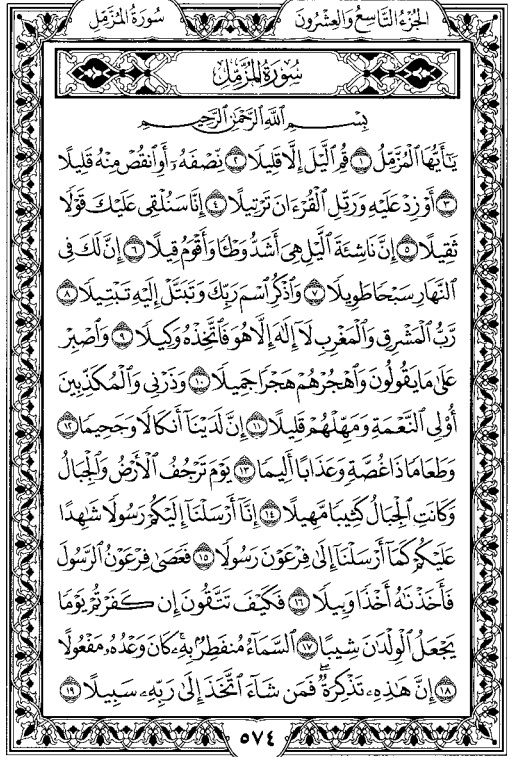 سُورَةُ المُزَّمِّلِ
الجُزْءُ التَّاسِعُ وَالعِشْرُونَ
سُورَةُ المُزَّمِّلِ
بِسْمِ ٱللَّهِ ٱلرَّحْمَٰنِ ٱلرَّحِيمِ
يَٰٓأَيُّهَا ٱلْمُزَّمِّلُ ١ قُمِ ٱلَّيْلَ إِلَّا قَلِيلًا ٢ نِّصْفَهُۥٓ أَوِ ٱنقُصْ مِنْهُ قَلِيلًا
٣ أَوْ زِدْ عَلَيْهِ وَرَتِّلِ ٱلْقُرْءَانَ تَرْتِيلًا ٤ إِنَّا سَنُلْقِى عَلَيْكَ قَوْلًا
ثَقِيلًا ٥ إِنَّ نَاشِئَةَ ٱلَّيْلِ هِىَ أَشَدُّ وَطْـًٔا وَأَقْوَمُ قِيلًا ٦ إِنَّ لَكَ فِى
ٱلنَّهَارِ سَبْحًا طَوِيلًا ٧ وَٱذْكُرِ ٱسْمَ رَبِّكَ وَتَبَتَّلْ إِلَيْهِ تَبْتِيلًا ٨
رَّبُّ ٱلْمَشْرِقِ وَٱلْمَغْرِبِ لَآ إِلَٰهَ إِلَّا هُوَ فَٱتَّخِذْهُ وَكِيلًا ٩ وَٱصْبِرْ
عَلَىٰ مَا يَقُولُونَ وَٱهْجُرْهُمْ هَجْرًا جَمِيلًا ١٠ وَذَرْنِى وَٱلْمُكَذِّبِينَ
أُو۟لِى ٱلنَّعْمَةِ وَمَهِّلْهُمْ قَلِيلًا ١١ إِنَّ لَدَيْنَآ أَنكَالًا وَجَحِيمًا ١٢
وَطَعَامًا ذَا غُصَّةٍ وَعَذَابًا أَلِيمًا ١٣ يَوْمَ تَرْجُفُ ٱلْأَرْضُ وَٱلْجِبَالُ
وَكَانَتِ ٱلْجِبَالُ كَثِيبًا مَّهِيلًا ١٤ إِنَّآ أَرْسَلْنَآ إِلَيْكُمْ رَسُولًا شَٰهِدًا
عَلَيْكُمْ كَمَآ أَرْسَلْنَآ إِلَىٰ فِرْعَوْنَ رَسُولًا ١٥ فَعَصَىٰ فِرْعَوْنُ ٱلرَّسُولَ
فَأَخَذْنَٰهُ أَخْذًا وَبِيلًا ١٦ فَكَيْفَ تَتَّقُونَ إِن كَفَرْتُمْ يَوْمًا
يَجْعَلُ ٱلْوِلْدَٰنَ شِيبًا ١٧ ٱلسَّمَآءُ مُنفَطِرٌۢ بِهِۦ ۚ كَانَ وَعْدُهُۥ مَفْعُولًا
١٨ إِنَّ هَٰذِهِۦ تَذْكِرَةٌ ۖ فَمَن شَآءَ ٱتَّخَذَ إِلَىٰ رَبِّهِۦ سَبِيلًا ١٩
٥٧٤